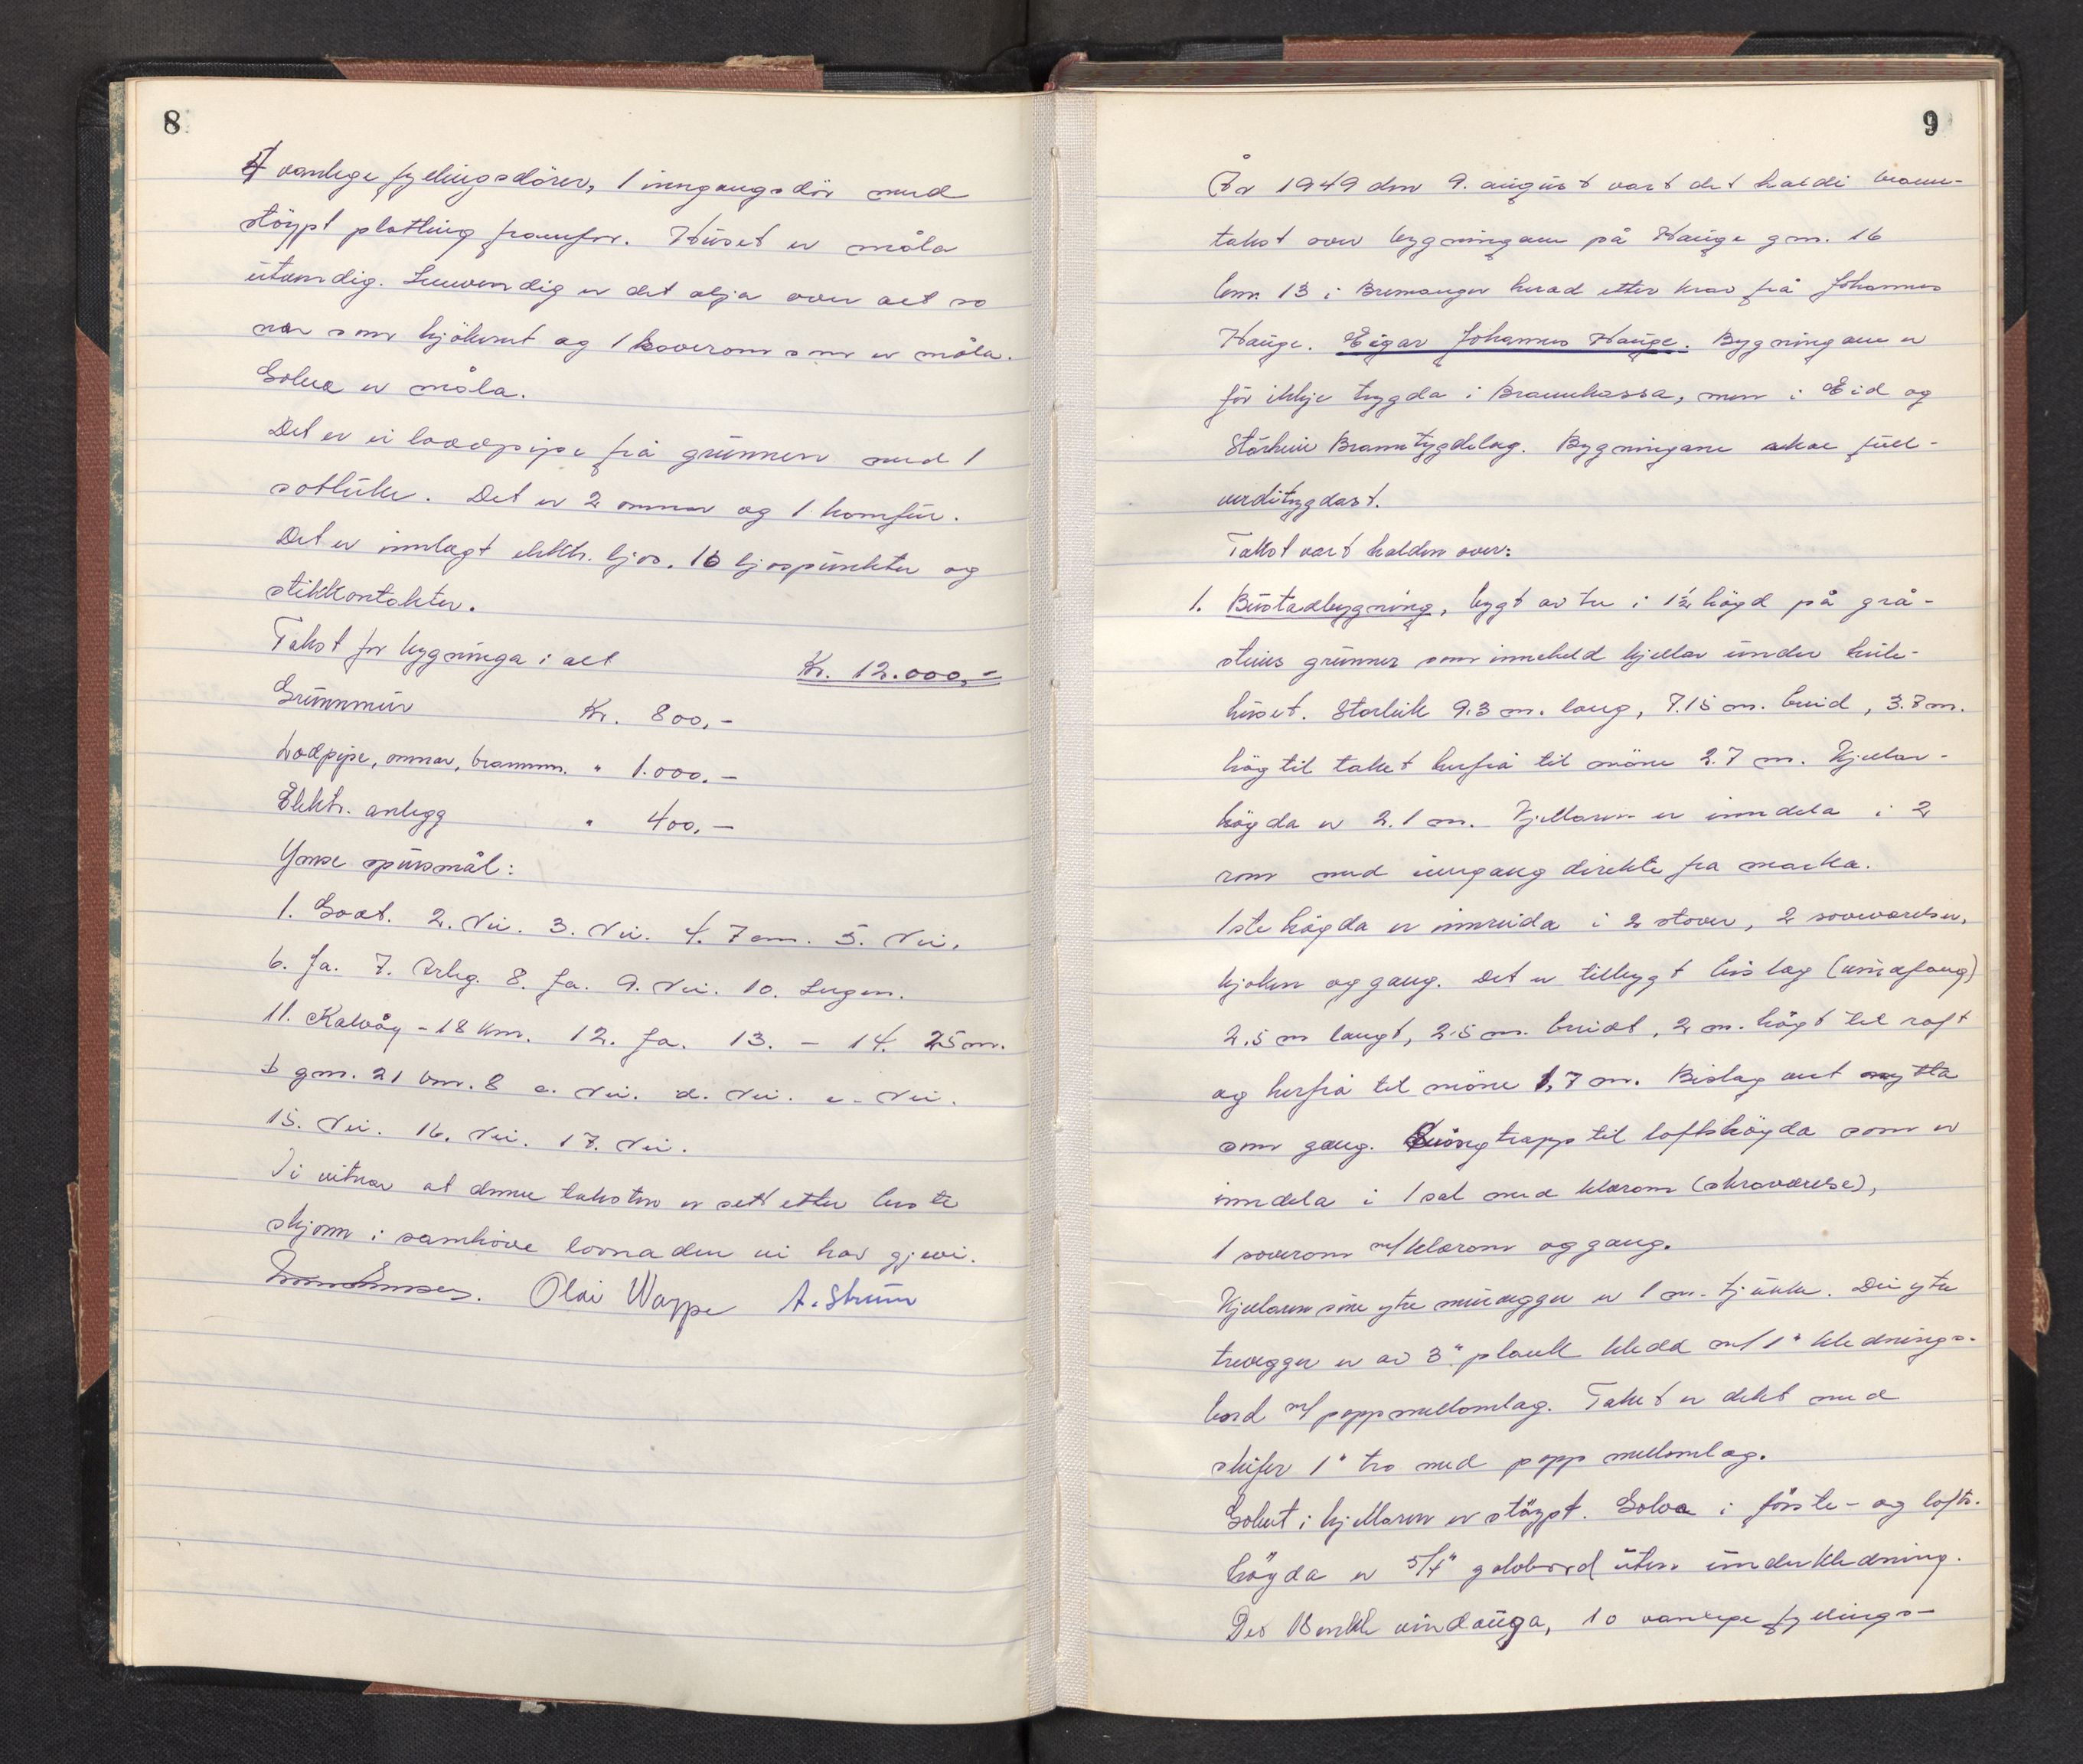 8
4 vanlege fyllingsdörer, 1 inngangsdör med
stöypt platting framfor. Huset er måla
utvendig. Innvendig er det olja over alt so
nær som kjökenet og 1 soverom som er måla.
Golva er måla.
Det er ei lodpipe frå grunnen med 1
sotluke. Det er 2 omnar og 1 komfür.
Det er innlagt elektr. ljos. 16 ljospunkter og
stikkontakter.
Takst for bygninga i alt Kr. 12.000,-
Grunnmur Kr. 800,-
Lodpipe, omnar, brannm. " 1.000,-
Elektr. anlegg " 400,-
Ymse spursmål:
1. Godt. 2. Nei. 3. Nei. 4. 7 m. 5. Nei.
6. Ja. 7. Årleg. 8. Ja. 9. Nei. 10. Ingen.
11. Kalvåg - 18 km. 12. Ja. 13. - 14. 25 m.
b gnr. 21 bnr. 8 c. Nei. d. Nei. e. Nei.
15. Nei. 16. Nei. 17. Nei.
Vi vitnar at denne taksten er sett etter beste
skjønn i samhöve lovnaden vi har gjevi.
Olai Wappe A. Strum
9
År 1949 den 9. august vart det haldi brann-
takst over bygningane på Hauge gnr. 16
bnr. 13 i Bremanger herad etter krav frå Johannes
Hauge. Eigar Johannes Hauge. Bygningane er
för ikkje trygda i Brannkassa, men i Eid og
Stårheim Branntrygdelag. Bygningane skal full-
verditrygdast.
Takst vart halden over:
1. Bustadbygning, bygt av tre i 1½ högd på grå-
steins grunnmur som inneheld kjellar under heile
huset. Storleik 9.3 m. lang, 7.15 m. breid, 3.7 m.
hög til taket herfrå til möne 2.7 m. Kjellar-
högda er 2.1 m. Kjellaren er inndela i 2
rom med inngang direkte fra marka.
1ste högda er innreida i 2 stover, 2 soverværelser,
kjöken og gang. Det er tilbygt bislag
2,5 m langt, 2.5 m. breidt, 2 m. högt til raft
og herfrå til möne 1,7 m. Bislag vert nytta
som gang. Svingtrapp til loftshögda som er
inndela i 1 sal med klerom (skråværelse),
1 soverom m/klerom og gang.
Kjellaren sine ytre murvegger er 1 m. tjukke. Dei ytre
trevegger er av 3" plank kledd m/ 1" klednings-
bord m/ pappmellomlag. Taket er dekt med
skifer 1" tro med papp mellomlag.
Golvet i kjellaren er stöypt. Golva i förste- og lofts-
högda er 5/4" golvbord uten underkledning.
Det 18 enkle vindauga, 10 vanlege fyllings-